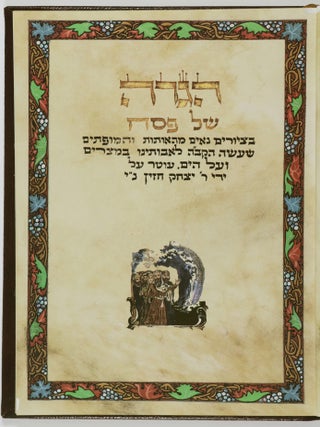 הגדה
של פסח
בציורים נאים מהאותות והמופתים
שעשה הקב״ה לאבותינו במצרים
ועל הים, עוטר על
ידי ר׳ יצחק חזין נ״י